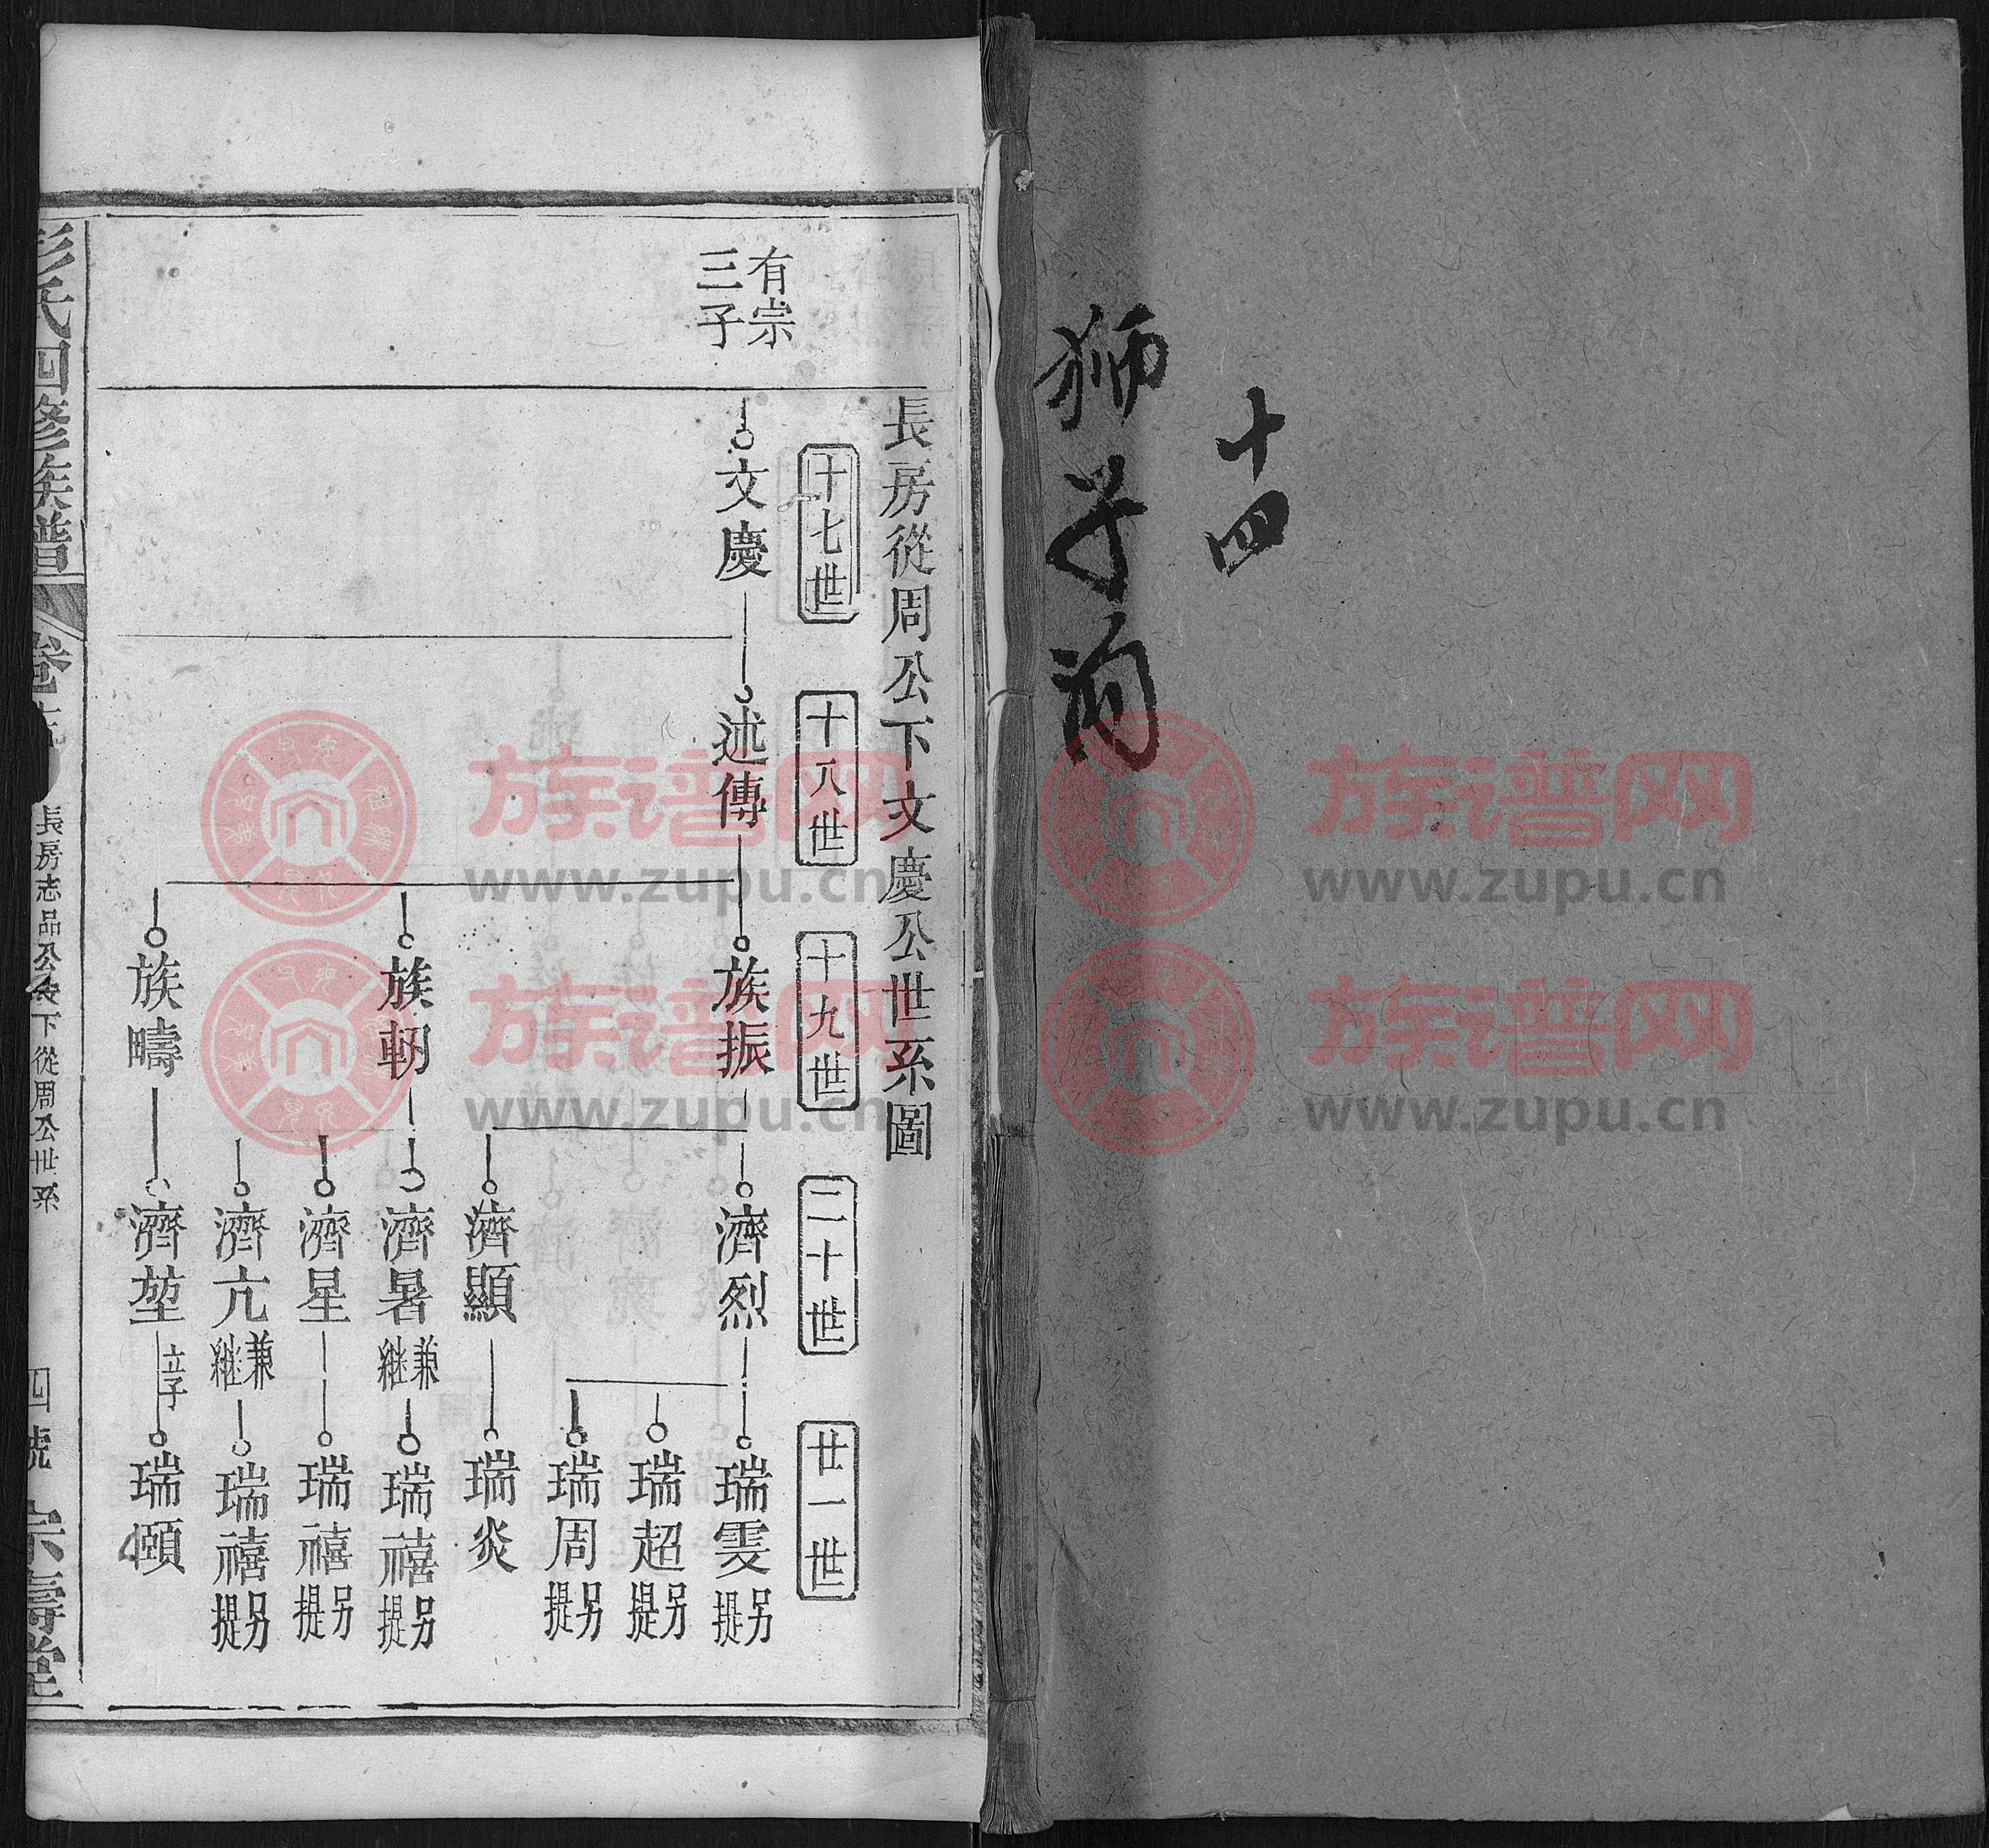 十四
狮子洵
長房從周公下文慶公世系圖
十七世
十八世
十九世
二十世
廿一世
有宗
三子
文慶
述傳
族振
濟烈
瑞雯 另提
瑞超 另提
瑞周 另提
濟顯
瑞炎
族軔
濟暑 兼継
瑞禧 另提
濟星
瑞禧 另提
濟亢 兼継
瑞禧 另提
族疇
濟堃 立子
瑞頤
彭氏四修族譜
卷
長房志品公 下從周公世系
四號
宗壽堂
族谱网
www.zupu.cn
族谱网
www.zupu.cn
族谱网
www.zupu.cn
族谱网
www.zupu.cn